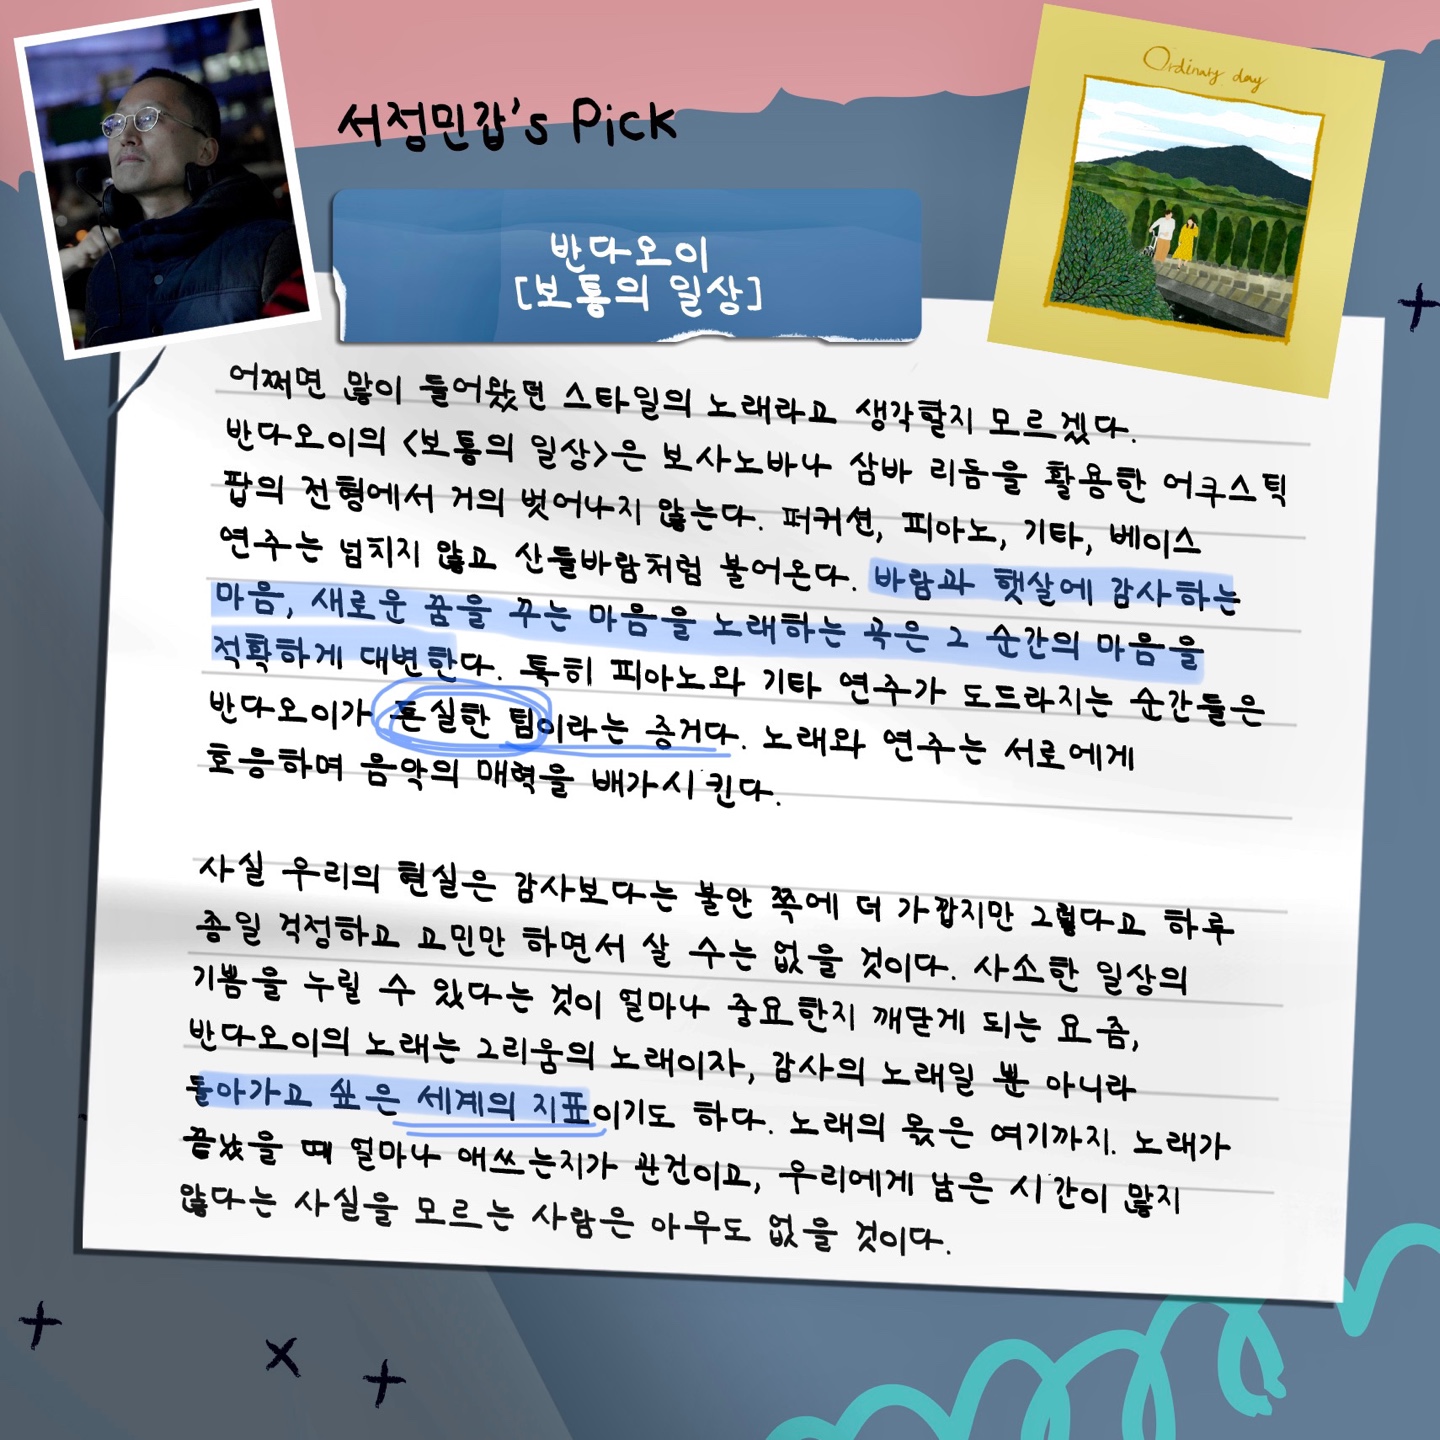 서정민갑's Pick
Ordinary day
반다오이
[보통의 일상]
어쩌면 많이 들어왔던 스타일의 노래라고 생각할지 모르겠다.
반다오이의 <보통의 일상>은 보사노바나 삼바 리듬을 활용한 어쿠스틱
팝의 전형에서 거의 벗어나지 않는다. 퍼커션, 피아노, 기타, 베이스
연주는 넘치지 않고 산들바람처럼 불어온다. 바람과 햇살에 감사하는
마음, 새로운 꿈을 꾸는 마음을 노래하는 곡은 그 순간의 마음을
적확하게 대변한다. 특히 피아노와 기타 연주가 도드라지는 순간들은
반다오이가 튼실한 팀이라는 증거다. 노래와 연주는 서로에게
호응하며 음악의 매력을 배가시킨다.
사실 우리의 현실은 감사보다는 불안 쪽에 더 가깝지만 그렇다고 하루
종일 걱정하고 고민만 하면서 살 수는 없을 것이다. 사소한 일상의
기쁨을 누릴 수 있다는 것이 얼마나 중요한지 깨닫게 되는 요즘,
반다오이의 노래는 그리움의 노래이자, 감사의 노래일 뿐 아니라
돌아가고 싶은 세계의 지표이기도 하다. 노래의 몫은 여기까지. 노래가
끝났을 때 얼마나 애쓰는지가 관건이고, 우리에게 남은 시간이 많지
않다는 사실을 모르는 사람은 아무도 없을 것이다.